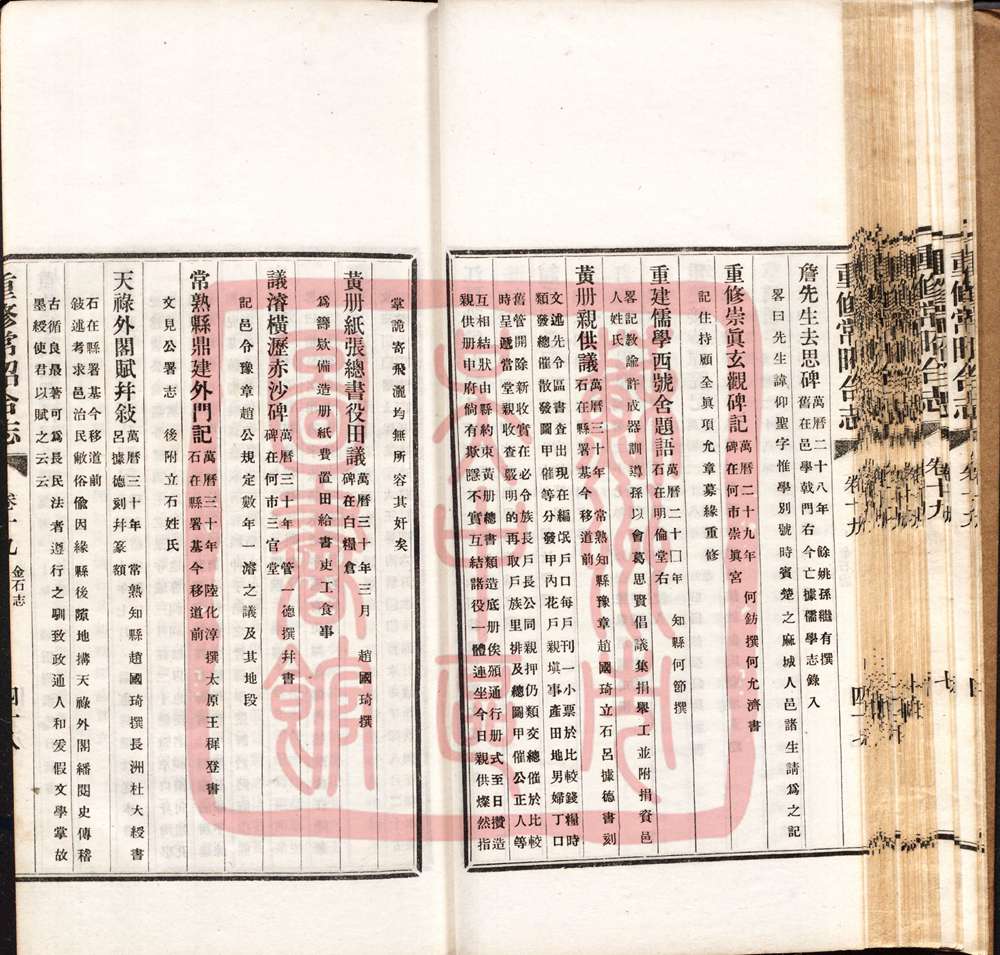 重修常昭合志 卷十九
詹先生去思碑 萬曆二十八年 餘姚孫繼有撰
舊在邑學戟門右今亡據儒學志錄入
畧曰先生諱仰聖字惟學別號時賓楚之麻城人邑諸生請爲之記
重修崇眞玄觀碑記 萬曆二十九年 何鈁撰何允濟書
碑在何市崇眞宮
記住持顧全眞項允章募緣重修
重建儒學西號舍題語 萬曆二十囗年 知縣何節撰
石在明倫堂右
畧記教諭許成器訓導孫以會葛思賢倡議集捐舉工並附捐資邑
人姓氏
黃册親供議 萬曆三十年 常熟知縣豫章趙國琦立石呂據德書刻
石在縣署基今移道前
文述先令區書查出現在編氓戶口每戶刊一小票於比較錢糧時
類發總催散發圖甲催等分發甲內花戶親塡事產田地男婦丁口
舊管開除新收實在必令族長戶長公同親押仍類交總催於比較
時呈遞當堂親收查驗明的再取戶族里排及總圖甲催公正人等
互相結狀由縣約束黃册總書類造底册俟頒通行册式至日攢造
親供册申府倘有欺隱不實互結諸役一體連坐今日親供燦然指
掌詭寄飛灑均無所容其奸矣
黃册紙張總書役田議 萬曆三十年三月 趙國琦撰
碑在白糧倉
爲籌欵備造册紙費置田給書吏工食事
議濬橫瀝赤沙碑 萬曆三十年 管一德撰幷書
碑在何市三官堂
記邑令豫章趙公規定數年一濬之議及其地段
常熟縣鼎建外門記 萬曆三十年 陸化淳撰太原王穉登書
石在縣署基今移道前
文見公署志 後附立石姓氏
天祿外閣賦幷敍 萬曆三十年 常熟知縣趙國琦撰長洲杜大綬書
呂據德刻幷篆額
石在縣署基今移道前
敍述考求邑治民敝俗偷因緣縣後隙地搆天祿外閣繙閱史傳稽
古循良最著可爲長民法者遵行之馴致政通人和爰假文學掌故
墨綬使君以賦之云云
重修常昭合志 卷十九 金石志 四十八